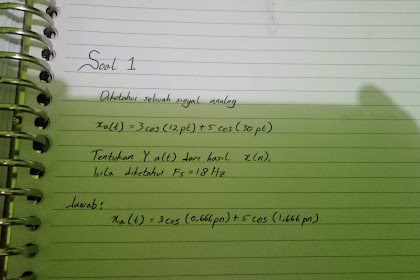 Soal 1
Diketahui sebuah sinyal analog
xa(t) = 3 cos (12 pt) + 5 cos (30 pt)
Tentukan Y a(t) dari hasil x(n),
bila diketahui Fs = 18 Hz
Jawab:
xa(t) = 3 cos (0,666 pn) + 5 cos (1,666 pn)